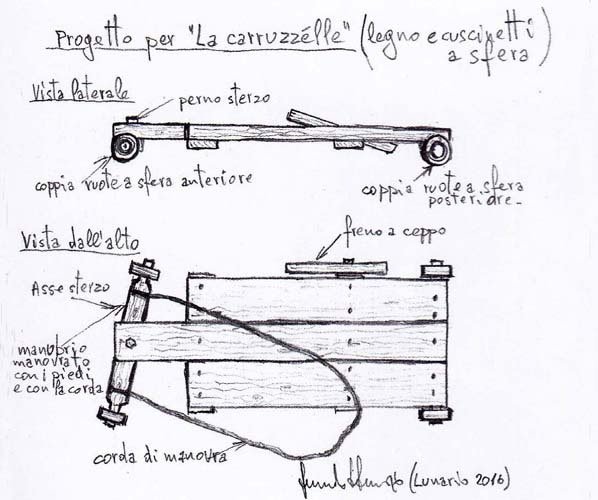 Progetto per "La carruzzélle" (legno e cuscinetti
a sfera)
Vista laterale
perno sterzo
coppia ruote a sfera anteriore
coppia ruote a sfera
posteriore
Vista dall'alto
freno a ceppo
Asse sterzo
manubrio
manovrato
con i piedi
e con la corda
corda di manovra
(Lunario 2016)